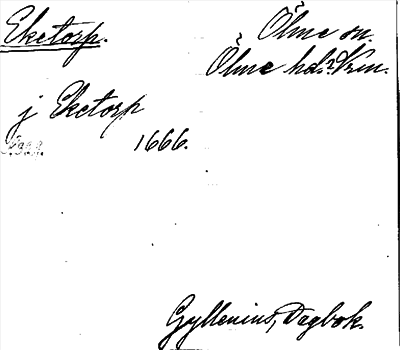 Eketorp.
Ölme sn.
Ölme hd.
j Eketorp
1666.
Gyllenius, Dagbok.